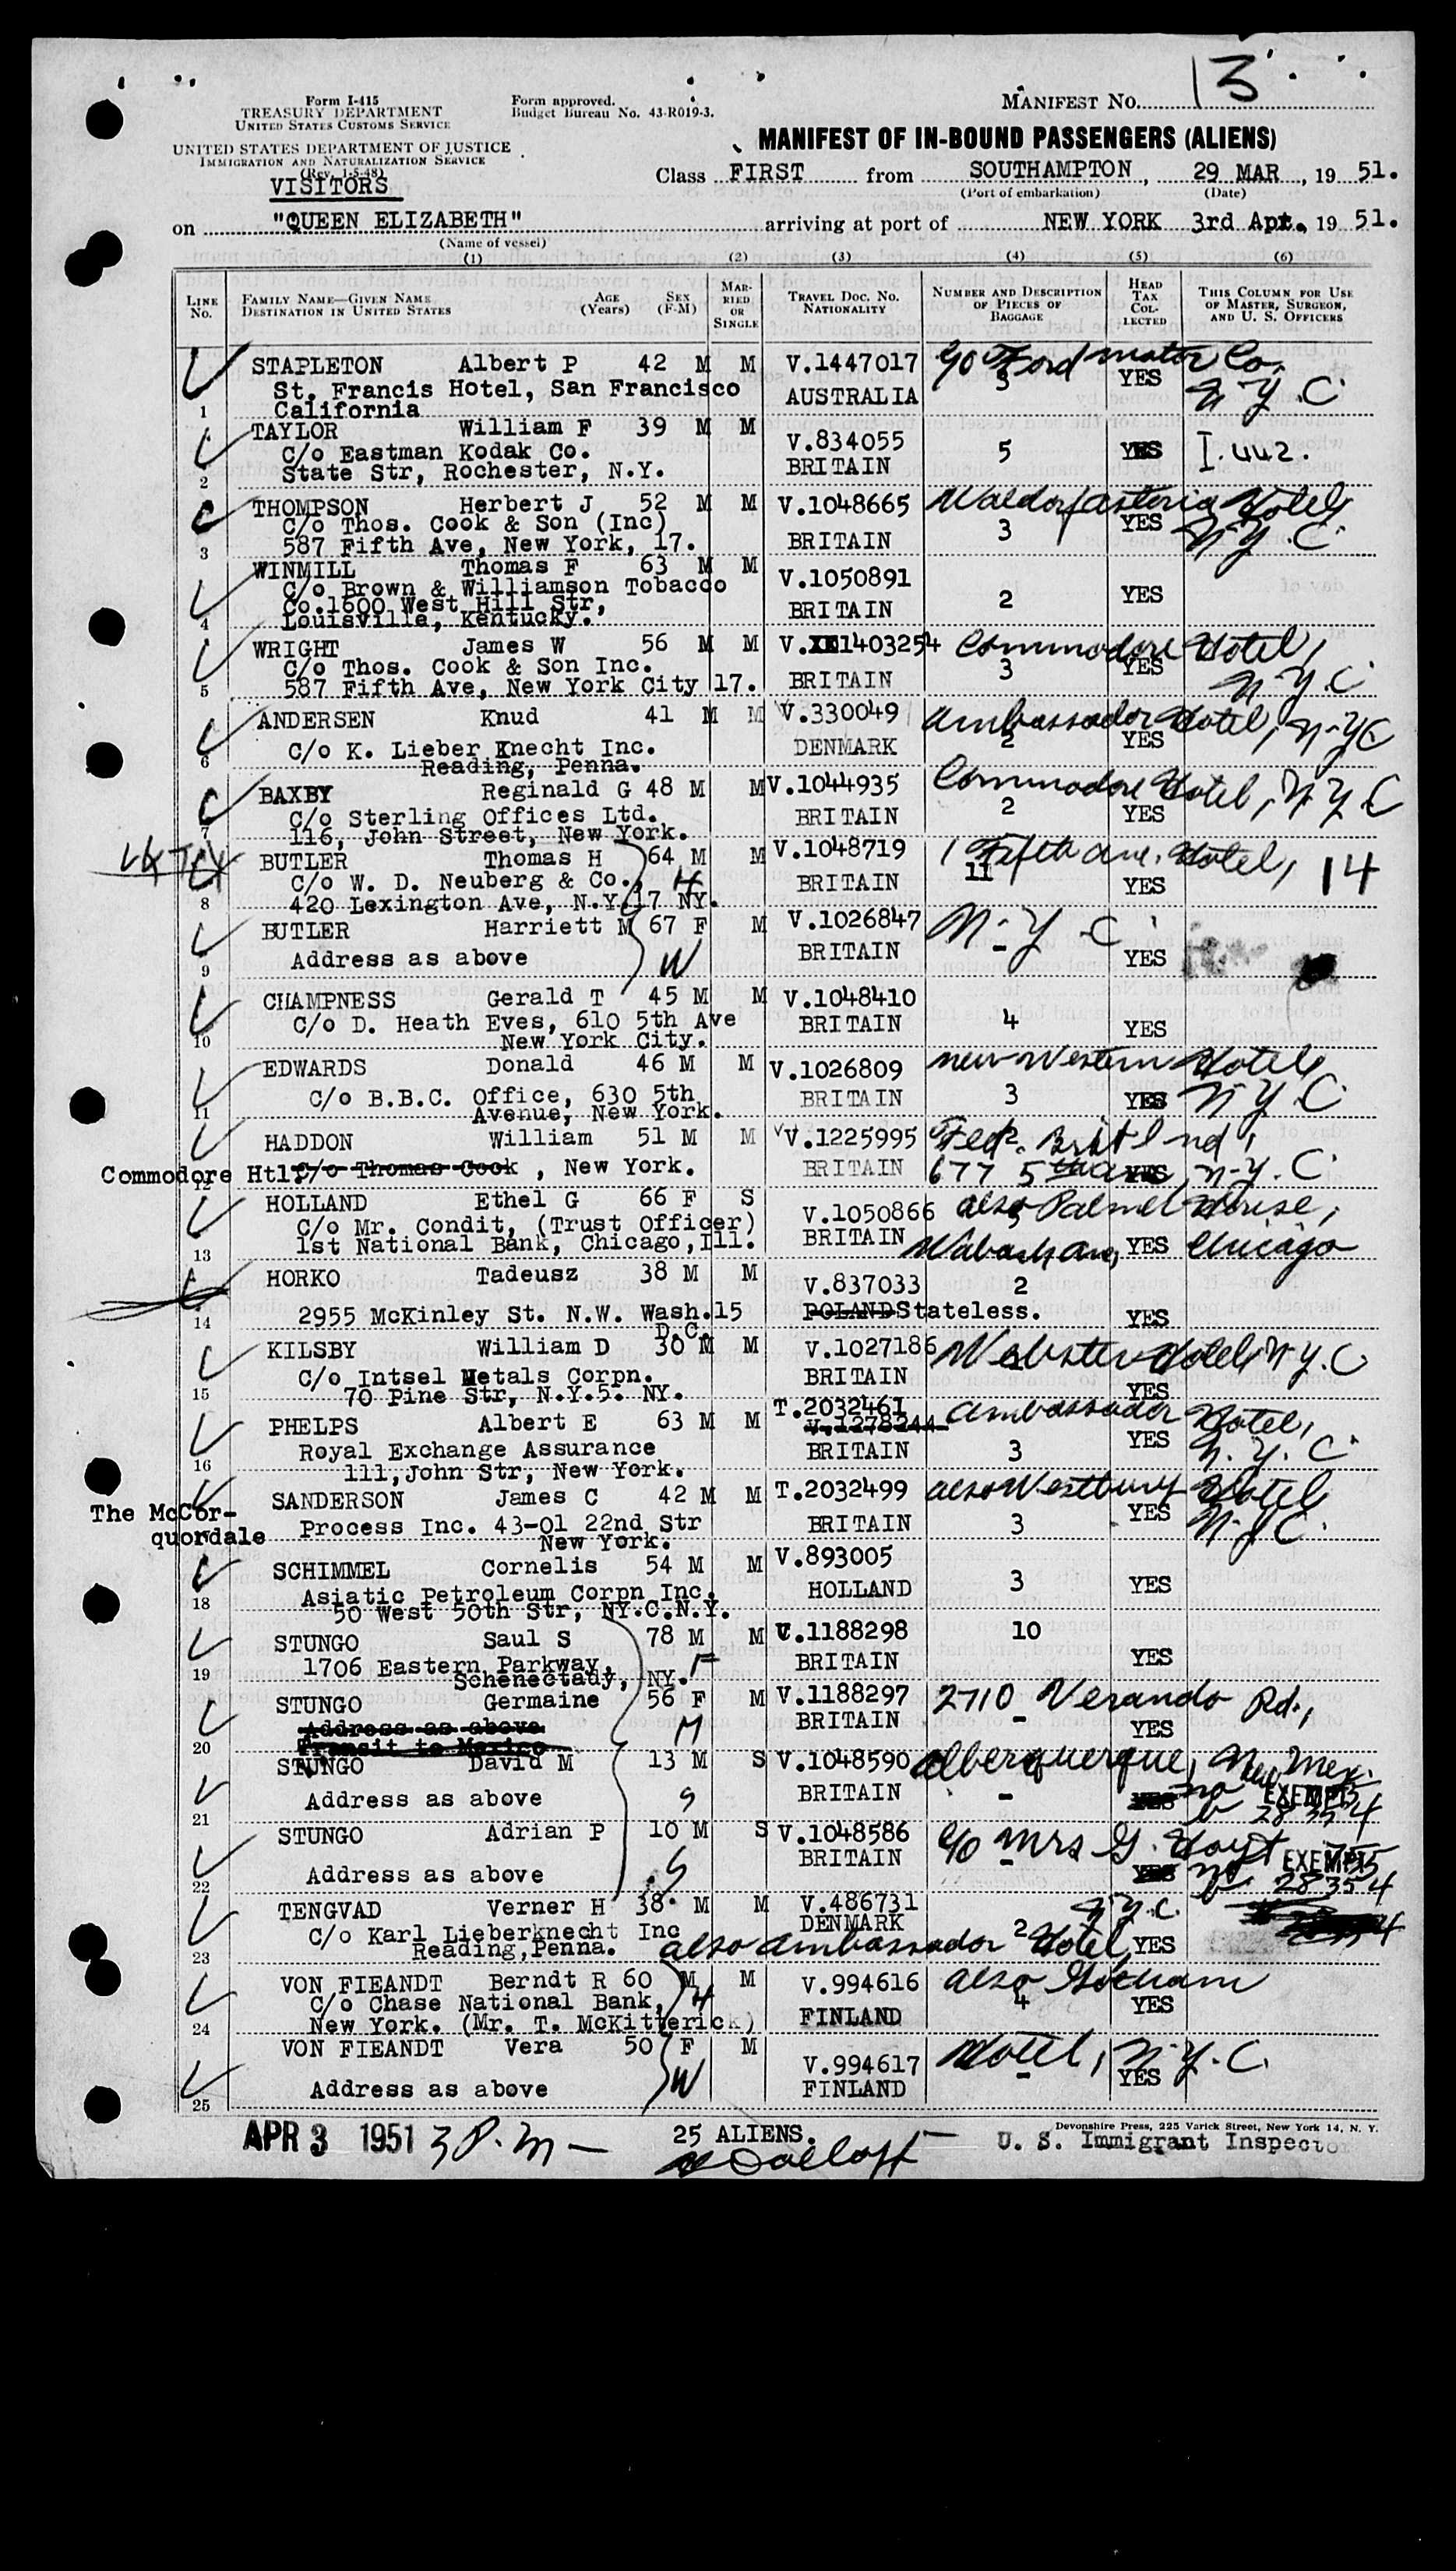 Form I-415
TREASURY DEPARTMENT
UNITED STATES CUSTOMS SERVICE
UNITED STATES DEPARTMENT OF JUSTICE
IMMIGRATION AND NATURALIZATION SERVICE
(Rev. 1-5-48)
VISITORS
Form approved.
Budget Bureau No. 43-R019-3.
MANIFEST NO. 13
MANIFEST OF IN-BOUND PASSENGERS (ALIENS)
Class FIRST from SOUTHAMPTON, 29 MAR, 19 51.
(Port of embarkation) (Date)
on "QUEEN ELIZABETH" arriving at port of NEW YORK 3rd Apr., 19 51.
(Name of vessel)
(1) (2) (3) (4) (5) (6)
LINE No. FAMILY NAME—GIVEN NAME DESTINATION IN UNITED STATES AGE (Years) SEX (F-M) MARRIED OR SINGLE TRAVEL DOC. NO. NATIONALITY NUMBER AND DESCRIPTION OF PIECES OF BAGGAGE HEAD TAX COLLECTED THIS COLUMN FOR USE OF MASTER, SURGEON, AND U. S. OFFICERS
STAPLETON Albert P 42 M M V.1447017 c/o Ford Motor Co.
St. Francis Hotel, San Francisco AUSTRALIA 3 YES N.Y.C.
1 California
TAYLOR William F 39 M M V.834055
C/o Eastman Kodak Co. 5 YES I.442.
2 State Str, Rochester, N.Y. BRITAIN
THOMPSON Herbert J 52 M M V.1048665 Waldorf Astoria Hotel
C/o Thos. Cook & Son (Inc) 3 YES N.Y.C.
3 587 Fifth Ave, New York, 17. BRITAIN
WINMILL Thomas F 63 M M V.1050891
C/o Brown & Williamson Tobacco
Co. 1600 West Hill Str, BRITAIN 2 YES
4 Louisville, Kentucky.
WRIGHT James W 56 M M V.1403254 Commodore Hotel,
C/o Thos. Cook & Son Inc. 3 YES
5 587 Fifth Ave, New York City 17. BRITAIN N.Y.C
ANDERSEN Knud 41 M M V.330049 Ambassador Hotel, N.Y.C
6 C/o K. Lieber Knecht Inc. DENMARK 2 YES
Reading, Penna.
BAXBY Reginald G 48 M M V.1044935 Commodore Hotel, N.Y.C
C/o Sterling Offices Ltd. BRITAIN 2 YES
7 116, John Street, New York.
BUTLER Thomas H 64 M M V.1048719 1 Fifth Ave. Hotel, 14
C/o W. D. Neuberg & Co., H BRITAIN 11 YES
8 420 Lexington Ave, N.Y.17 NY.
BUTLER Harriett M 67 F M V.1026847 N.Y.C.
9 Address as above W BRITAIN - YES
CHAMPNESS Gerald T 45 M M V.1048410
C/o D. Heath Eves, 610 5th Ave BRITAIN 4 YES
10 New York City.
EDWARDS Donald 46 M M V.1026809 New Western Hotel
C/o B.B.C. Office, 630 5th BRITAIN 3 YES N.Y.C.
11 Avenue, New York.
HADDON William 51 M M V.1225995 2 Fed. Brit Ind,
12 Commodore Htl. C/o Thomas Cook , New York. BRITAIN 677 5th Ave YES N.Y.C.
HOLLAND Ethel G 66 F S V.1050866 also Palmer House,
C/o Mr. Condit, (Trust Officer)
13 1st National Bank, Chicago, Ill. BRITAIN Wabash Ave, YES Chicago
HORKO Tadeusz 38 M M V.837033 2
14 2955 McKinley St. N.W. Wash.15 POLAND Stateless. YES
D.C.
KILSBY William D 30 M M V.1027186 Webster Hotel, N.Y.C
C/o Intsel Metals Corpn. BRITAIN
15 70 Pine Str, N.Y.5. NY. YES
PHELPS Albert E 63 M M T.2032461 V.1278244 Ambassador Hotel,
16 Royal Exchange Assurance BRITAIN 3 YES N.Y.C
111, John Str, New York.
SANDERSON James C 42 M M T.2032499 also Westbury Hotel
The McCorquordale Process Inc. 43-01 22nd Str BRITAIN 3 YES N.Y.C.
New York.
SCHIMMEL Cornelis 54 M M V.893005
18 Asiatic Petroleum Corpn Inc. HOLLAND 3 YES
50 West 50th Str, NY.C.N.Y.
STUNGO Saul S 78 M M V.1188298 10
19 1706 Eastern Parkway, F BRITAIN YES
Schenectady, NY.
STUNGO Germaine 56 F M V.1188297 2710 Verando Rd.,
Address as above M BRITAIN - YES
20 Transit to Mexico
STUNGO David M 13 M S V.1048590 Alberquerque, New Mex.
21 Address as above S BRITAIN - YES no EXEMPT
28354
STUNGO Adrian P 10 M S V.1048586 c/o Mrs G. Hoyt
22 Address as above S BRITAIN - YES no EXEMPT
28354
TENGVAD Verner H 38 M M V.486731 N.Y.C.
C/o Karl Lieberknecht Inc DENMARK 2
23 Reading, Penna. also Ambassador Hotel, YES
VON FIEANDT Berndt R 60 M M V.994616 also Gotham
C/o Chase National Bank, H 4 YES
24 New York. (Mr. T. McKitterick) FINLAND
VON FIEANDT Vera 50 F M V.994617 Hotel, N.Y.C.
25 Address as above W FINLAND - YES
APR 3 1951 3 P.M — 25 ALIENS.
Devonshire Press, 225 Varick Street, New York 14, N. Y.
U. S. Immigrant Inspector